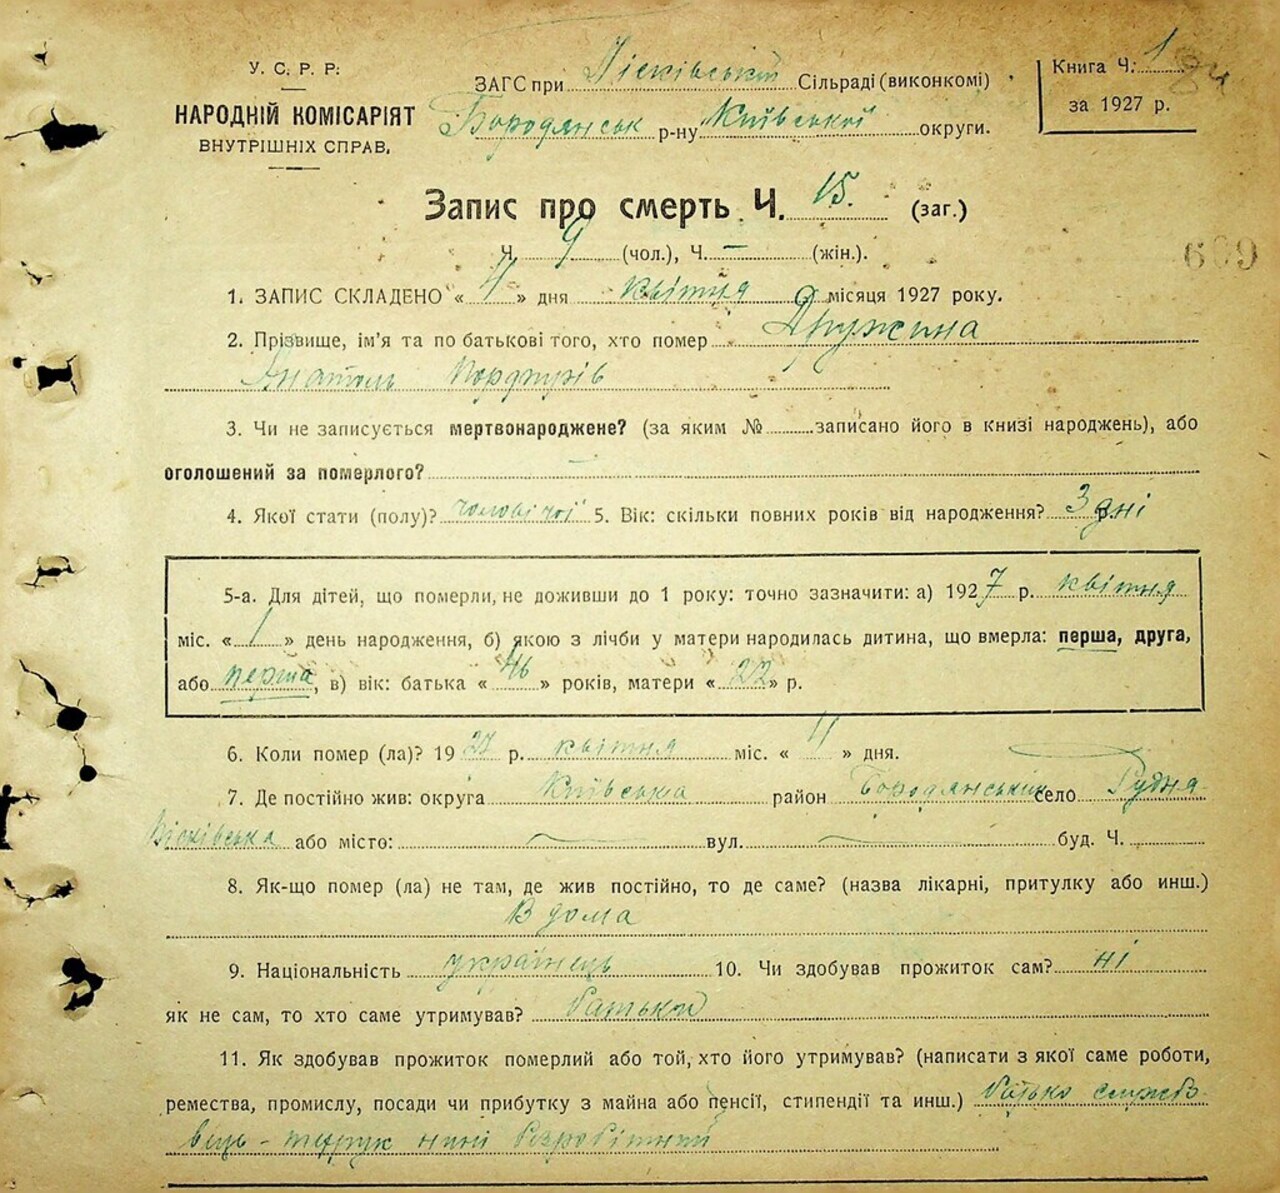 У. С. Р. Р.
НАРОДНІЙ КОМІСАРІЯТ
ВНУТРІШНІХ СПРАВ.
ЗАГС при Пісківській Сільраді (виконкомі)
Бородянськ р-ну Київської округи.
Книга Ч. 1
за 1927 р.
Запис про смерть Ч. 15. (заг.)
Ч. 9 (чол.), Ч. — (жін.).
609
1. ЗАПИС СКЛАДЕНО « 4 » дня квітня місяця 1927 року.
2. Прізвище, ім'я та по батькові того, хто помер Дружина
Анатоль
3. Чи не записується мертвонароджене? (за яким № записано його в книзі народжень), або
оголошений за померлого? —
4. Якої стати (полу)? чоловічої 5. Вік: скільки повних років від народження? 3 дні
5-а. Для дітей, що померли, не доживши до 1 року: точно зазначити: а) 1927 р. квітня
міс. « 1 » день народження, б) якою з лічби у матери народилась дитина, що вмерла: перша, друга,
або перша, в) вік: батька « 46 » років, матери « 22 » р.
6. Коли помер (ла)? 1927 р. квітня міс. « 4 » дня.
7. Де постійно жив: округа Київська район Бородянський село Рудня
Пісківська або місто: вул. буд. Ч.
8. Як-що помер (ла) не там, де жив постійно, то де саме? (назва лікарні, притулку або инш.)
В дома
9. Національність українець 10. Чи здобував прожиток сам? ні
як не сам, то хто саме утримував? батьки
11. Як здобував прожиток померлий або той, хто його утримував? (написати з якої саме роботи,
ремества, промислу, посади чи прибутку з майна або пенсії, стипендії та инш.) батько службо
вець - нині безробітний